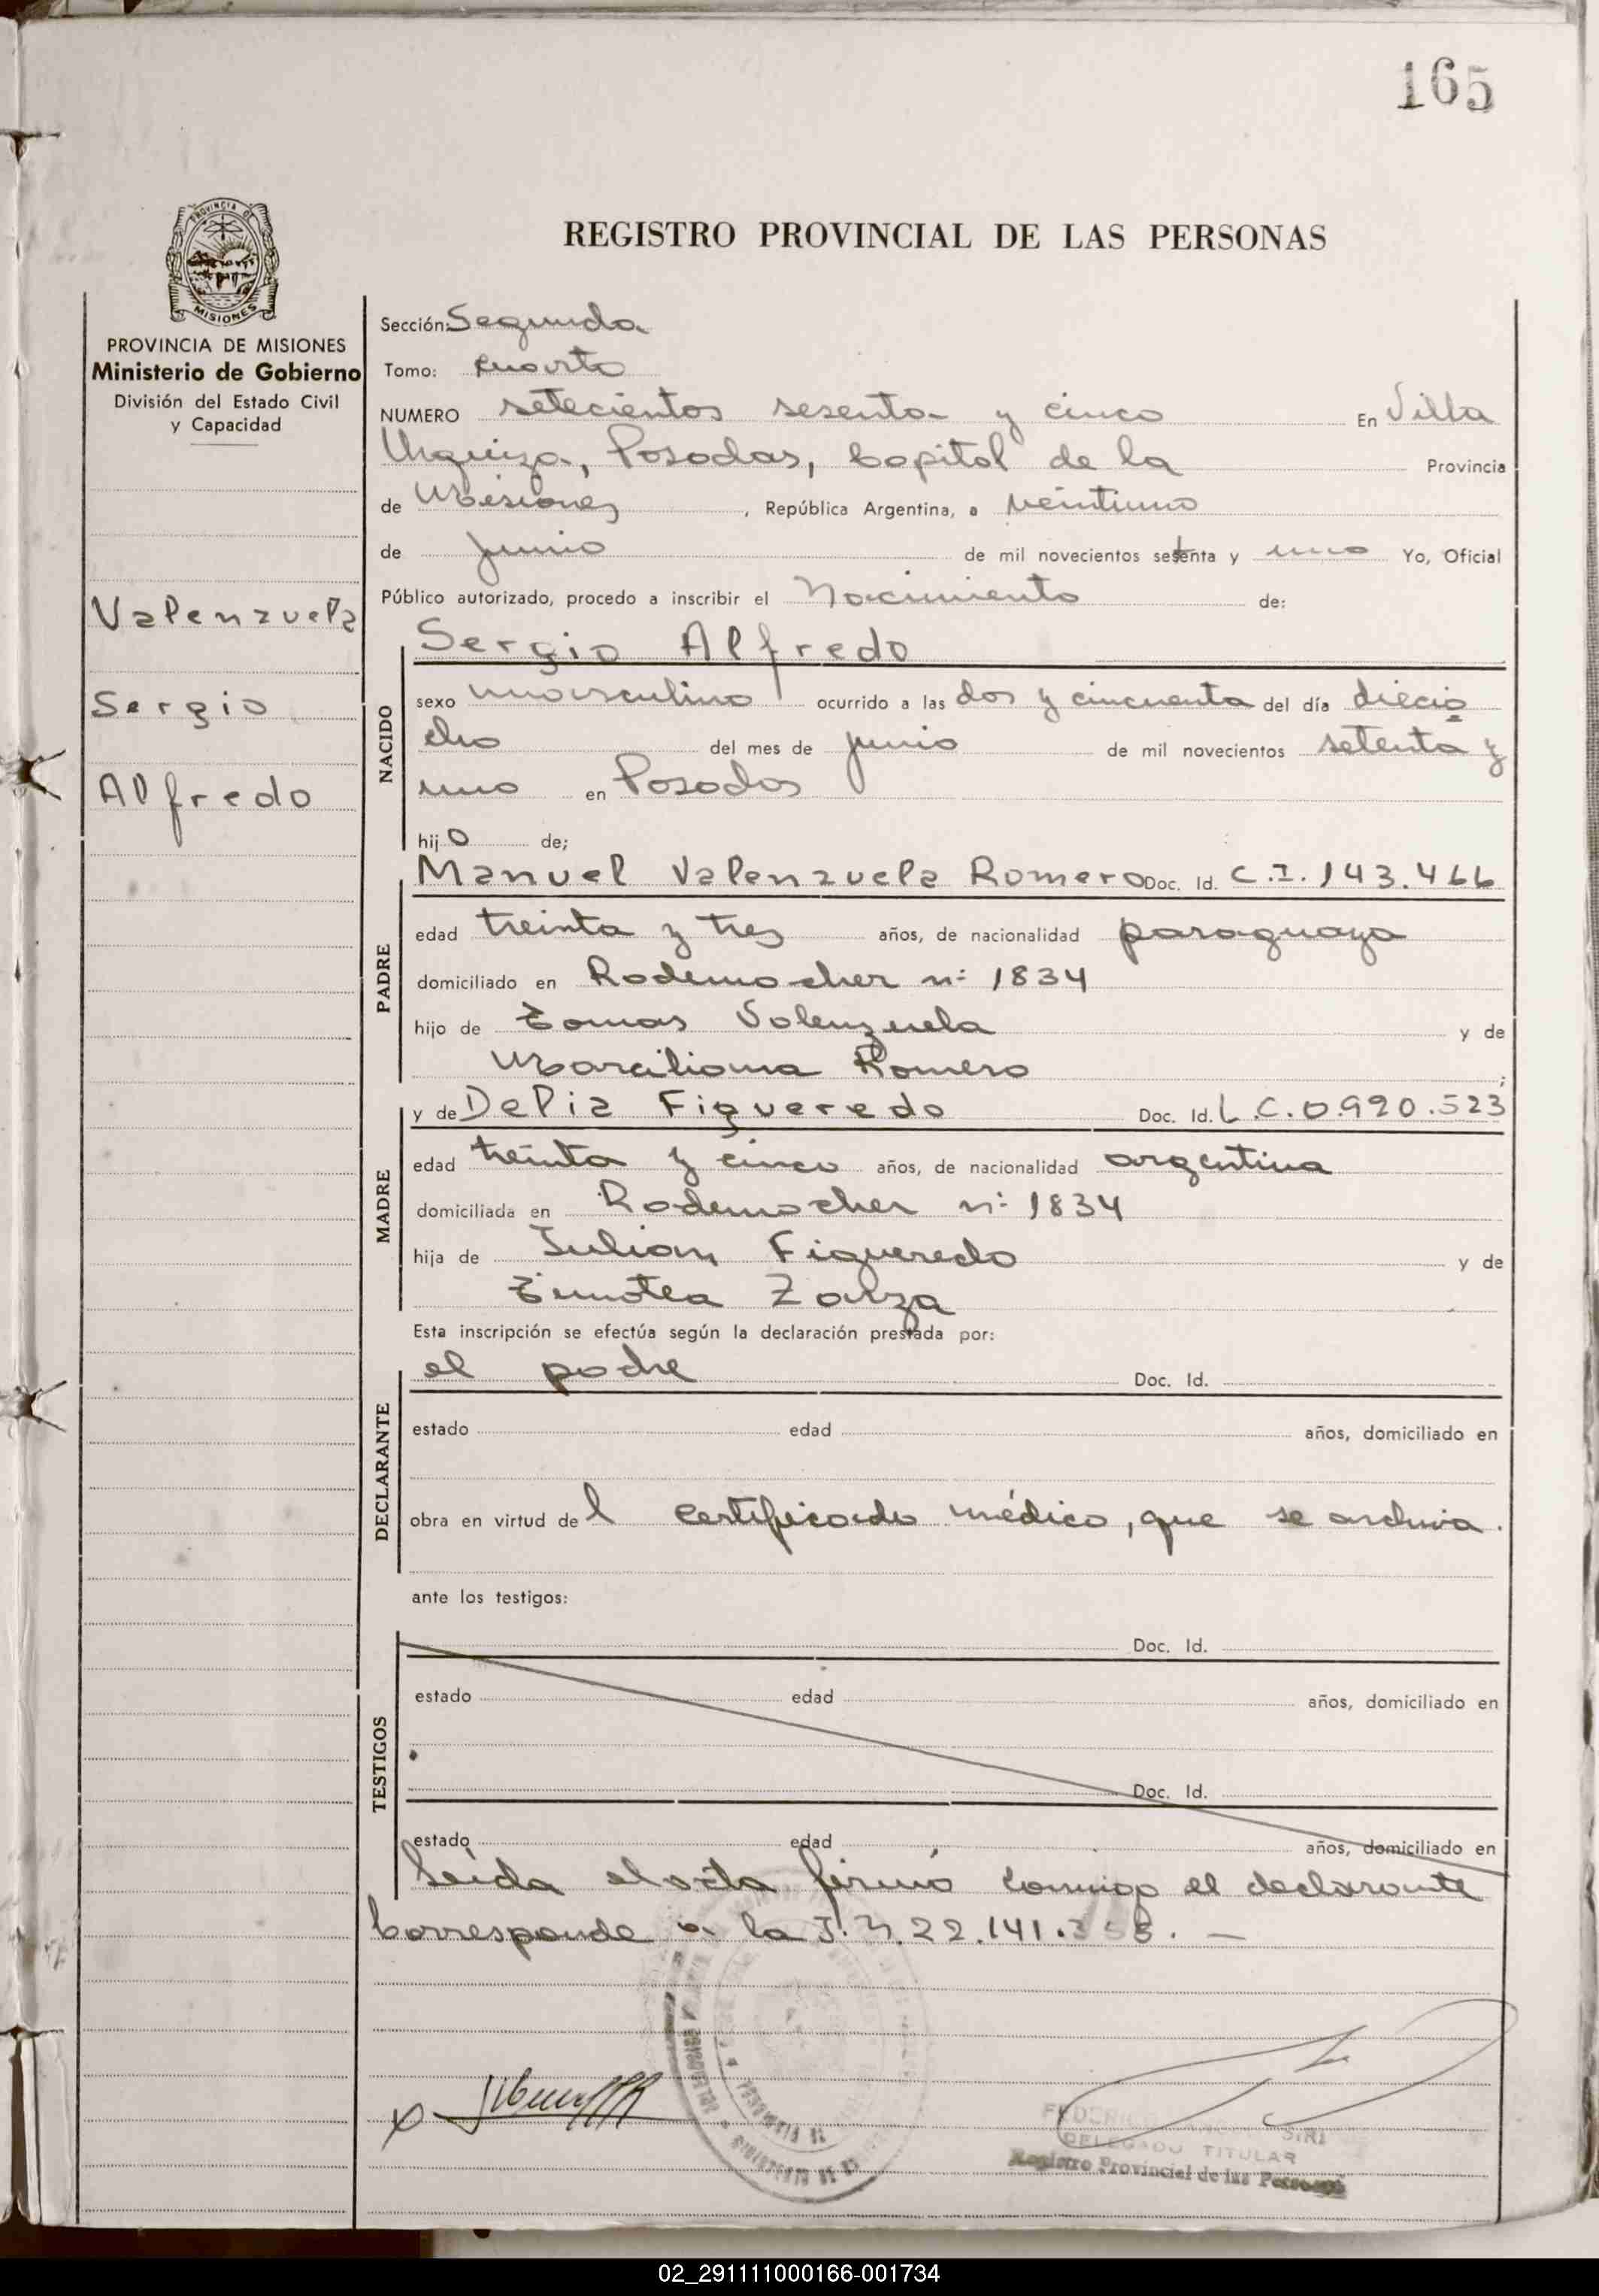 165
PROVINCIA DE
MISIONES
REGISTRO PROVINCIAL DE LAS PERSONAS
PROVINCIA DE MISIONES
Ministerio de Gobierno
División del Estado Civil
y Capacidad
Valenzuela
Sergio
Alfredo
Sección: Segunda
Tomo: cuarto
NUMERO setecientos sesenta y cinco En Villa
Urquiza, Posadas, Capital de la Provincia
de Misiones, República Argentina, a veintiuno
de junio de mil novecientos setenta y uno Yo, Oficial
Público autorizado, procedo a inscribir el Nacimiento de:
NACIDO
Sergio Alfredo
sexo masculino ocurrido a las dos y cincuenta del día diecio
cho del mes de junio de mil novecientos setenta y
uno en Posadas
hijo de;
PADRE
Manuel Valenzuela Romero Doc. Id. C.I. 143.466
edad treinta y tres años, de nacionalidad paraguaya
domiciliado en Rademacher nº 1834
hijo de Tomas Valenzuela y de
Marciliana Romero;
MADRE
y de Delia Figueredo Doc. Id. L.C.0.990.523
edad treinta y cinco años, de nacionalidad argentina
domiciliada en Rademacher nº 1834
hija de Julian Figueredo y de
Timotea Zarza
Esta inscripción se efectúa según la declaración prestada por:
DECLARANTE
el padre Doc. Id.
estado edad años, domiciliado en
obra en virtud del certificado médico, que se archiva.
ante los testigos:
TESTIGOS
Doc. Id.
estado edad años, domiciliado en
Doc. Id.
estado edad años, domiciliado en
Leida el acta firmó conmigo el declarante
Corresponde a la 22.141.
FEDERICO SIRI
DELEGADO TITULAR
Registro Provincial de las Personas
02_291111000166-001734